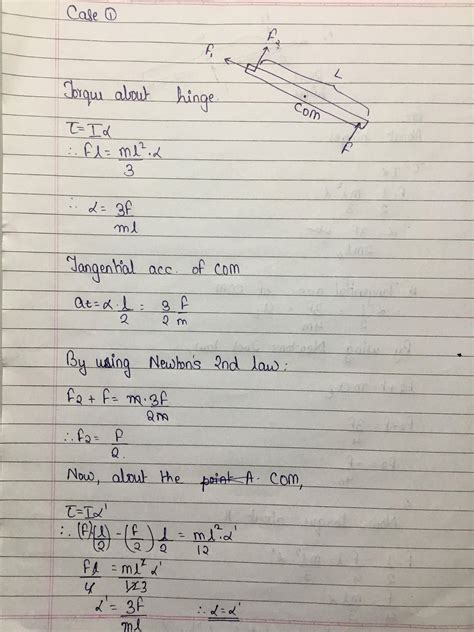 Case ①
F₁
F₂
L
COM
F
Torque about hinge.
τ=Iα
∴ Fl = ml²/3 . α
∴ α = 3F/ml
Tangential acc. of com
at=α.l/2 = 3/2 F/m
By using Newton's 2nd law:
F2 + F= m.3F/2m
∴F2= F/2.
Now, about the point A. COM,
τ=Iα'
∴ (F)(l/2) - (F/2) l/2 = ml²/12 . α'
Fl/4 = ml²/12 3 α'
α' = 3F/ml ∴ α=α'